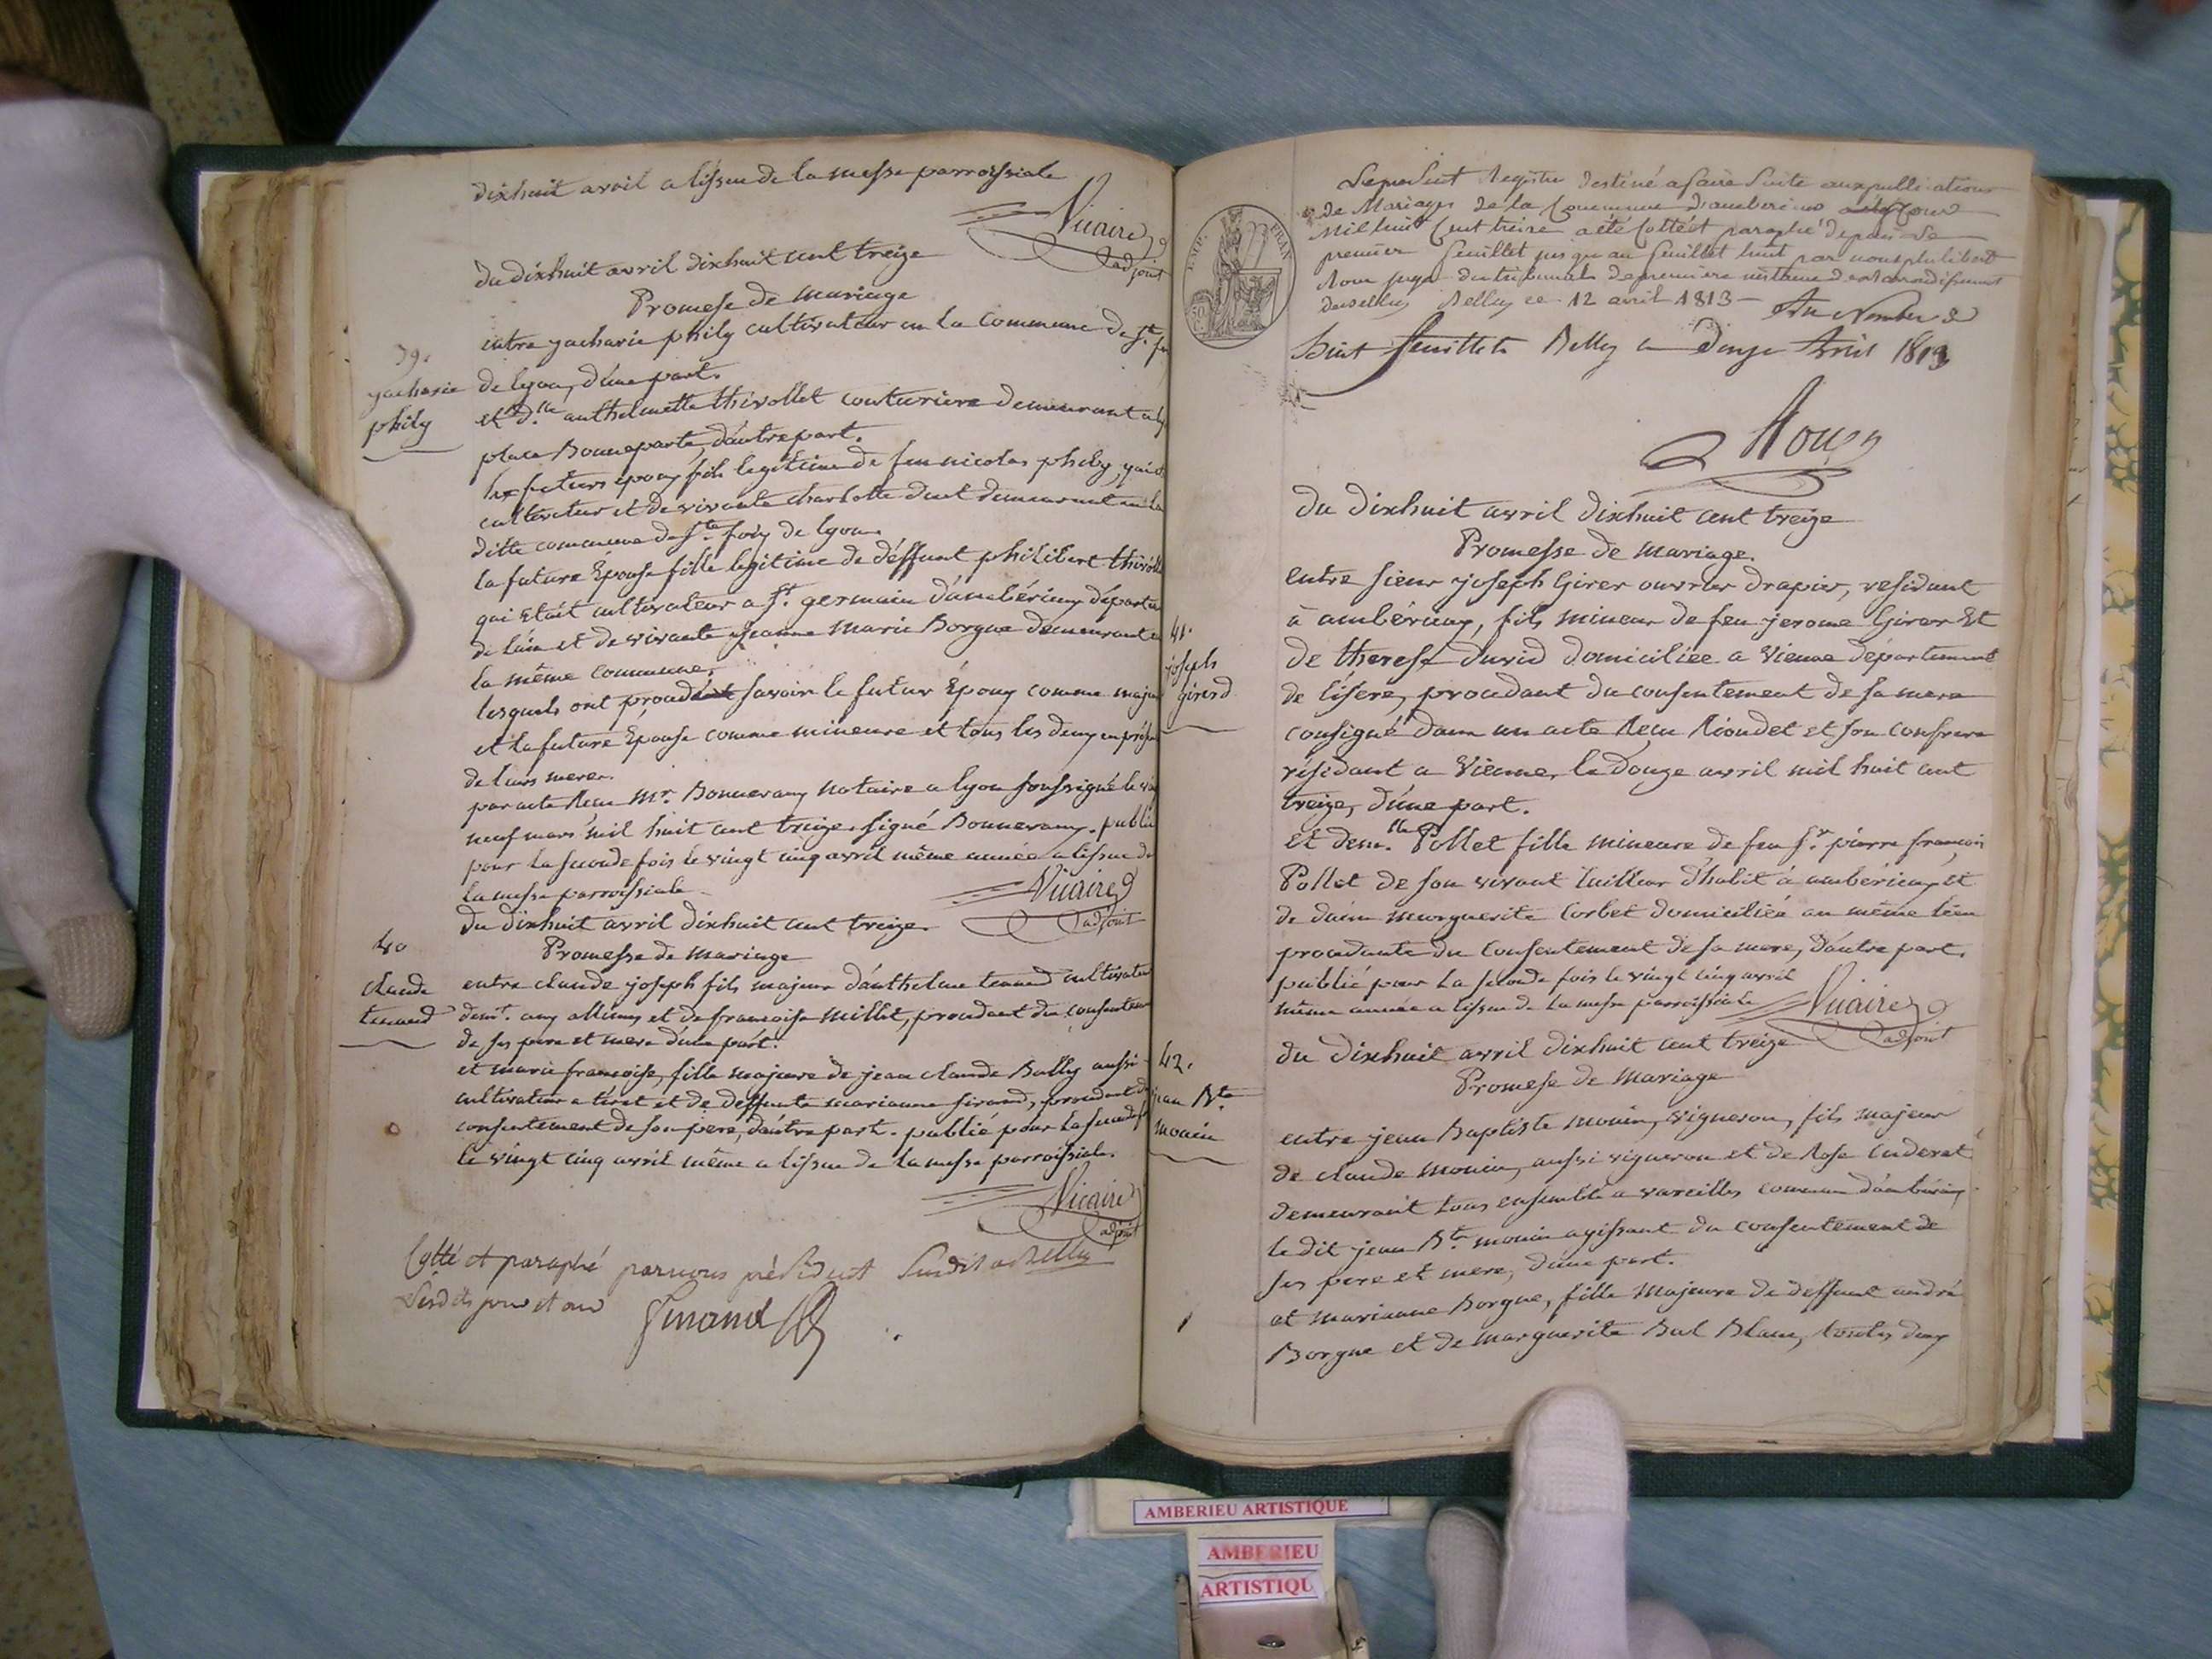 dixhuit avril a lissue de la messe parroissiale
Vicaire
adjoint
du dixhuit avril dixhuit cent treize
Promesse de mariage
39.
zacharie
phily
entre zacharie phily cultivateur en la commune de Ste foy
de lyon, d'une part.
et dlle anthelmette thivollet couturiere demeurant a
place Bonnaparte, d'autre part.
le futurs époux fils legitime de feu nicolas phily, qui
cultivateur et de vivante charlotte demeurant en la
ditte commune de Ste foix de lyon.
la future Épouse fille legitime de deffunt philibert thivollet
qui Etait cultivateur a St. germain d'ambérieux départem
de l'ain et de vivante jeanne Marie Borgne demeurant
la même commune.
lesquels ont procédé savoir le futur Époux comme majeur
et la future Épouse comme mineure et tous les deux en présen
de leurs meres.
par acte Recu Mr. Bonnevaux notaire a lyon soussigné le vin
neuf mars mil huit cent treize. signé Bonnevaux. publié
pour la seconde fois le vingt cinq avril même année a lissue de
la messe parroissiale
Vicaire
adjoint
du dixhuit avril dixhuit cent treize
Promesse de mariage
40
claude
tenand
entre claude joseph fils majeur d'anthelme tenand cultivateur
demt. aux allimes et de francoise Millet, procedant du consentem
de ses pere et mere d'une part.
et marie francoise, fille majeure de jean claude Bally aussi
cultivateur a tiret et de deffunte marianne sirand, procedant du
consentement de son pere, d'autre part. publié pour la seconde f
le vingt cinq avril même a lissue de la messe parroissiale.
Vicaire
adjoint
Cotté et paraphé par nous président Susdit a Belley
Lesdits jour et an
Le present Registre destiné a faire suite aux publications
de Mariages de la Commune d'amberieux
Mil huit Cent treize a été Cotté et paraphé depuis Le
premier feuillet jusqu'au feuillet huit par nous philibert
Roux juge du tribunal de premiere instance de l'arrondissement
de Belley Belley ce 12 avril 1813
EMP. FRAN.
50
C.
huit feuillets Belley le Douze Avril 1813
Roux
du dixhuit avril dixhuit cent treize
Promesse de Mariage.
41.
joseph
girerd
entre sieur joseph Girer ouvrier drapier, residant
à ambérieux, fils mineur de feu jerome Girer Et
de therese david domiciliée a Vienne département
de l'isere, procedant du consentement de sa mere
consigné dans un acte Recu Riondet et son confrere
résidant a Vienne, le douze avril mil huit cent
treize, d'une part.
Et demlle. Pollet fille mineure de feu Sr. pierre francois
Pollet de son vivant tailleur d'habit à ambérieux, et
de dame marguerite Corbet domiciliée au même lieu
procedante du Consentement de sa mere, d'autre part.
publié pour la seconde fois le vingt cinq avril
même année a lissue de la messe parroissiale
Vicaire
adjoint
du dixhuit avril dixhuit cent treize
Promesse de Mariage
42.
jean Bte
monin
entre jean Baptiste Monin, vigneron, fils majeur
de claude Monin, aussi vigneron et de Rose
demeurant tous ensemble a vareilles commune d'ambérieux
le dit jean Bte. monin agissant du consentement de
ses pere et mere, d'une part.
et marianne Borgne, fille Majeure de deffunt andré
Borgne et de marguerite Bal Blanc, toutes deux
AMBERIEU ARTISTIQUE
AMBERIEU
ARTISTIQU